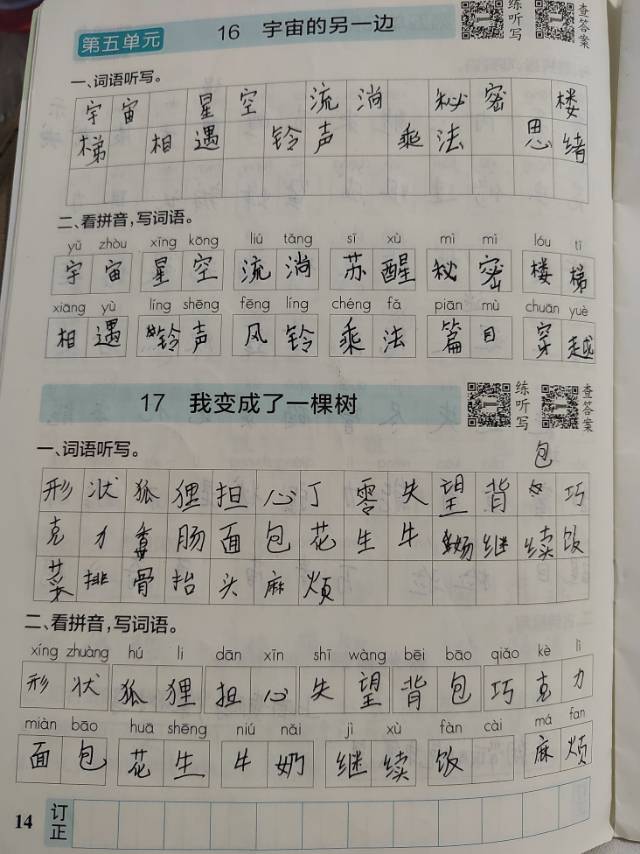 第五单元 16 宇宙的另一边 练听写 查答案
一、词语听写。
宇宙 星空 流淌 秘密 楼
梯 相遇 铃声 乘法 思绪
二、看拼音，写词语。
yǔ zhòu xīng kōng liú tǎng sī xù mì mì lóu tī
宇宙 星空 流淌 苏醒 秘密 楼梯
xiāng yù líng shēng fēng líng chéng fǎ piān mù chuān yuè
相遇 铃声 风铃 乘法 篇目 穿越
17 我变成了一棵树 练听写 查答案
一、词语听写。
包
形状狐狸担心丁零失望背 巧
克力香肠面包花生牛 继续饭
菜排骨抬头麻烦
二、看拼音，写词语。
xíng zhuàng hú li dān xīn shī wàng bēi bāo qiǎo kè lì
形状 狐狸 担心 失望 背包 巧克力
miàn bāo huā shēng niú nǎi jì xù fàn cài má fan
面包 花生 牛奶 继续 饭 麻烦
14 订正